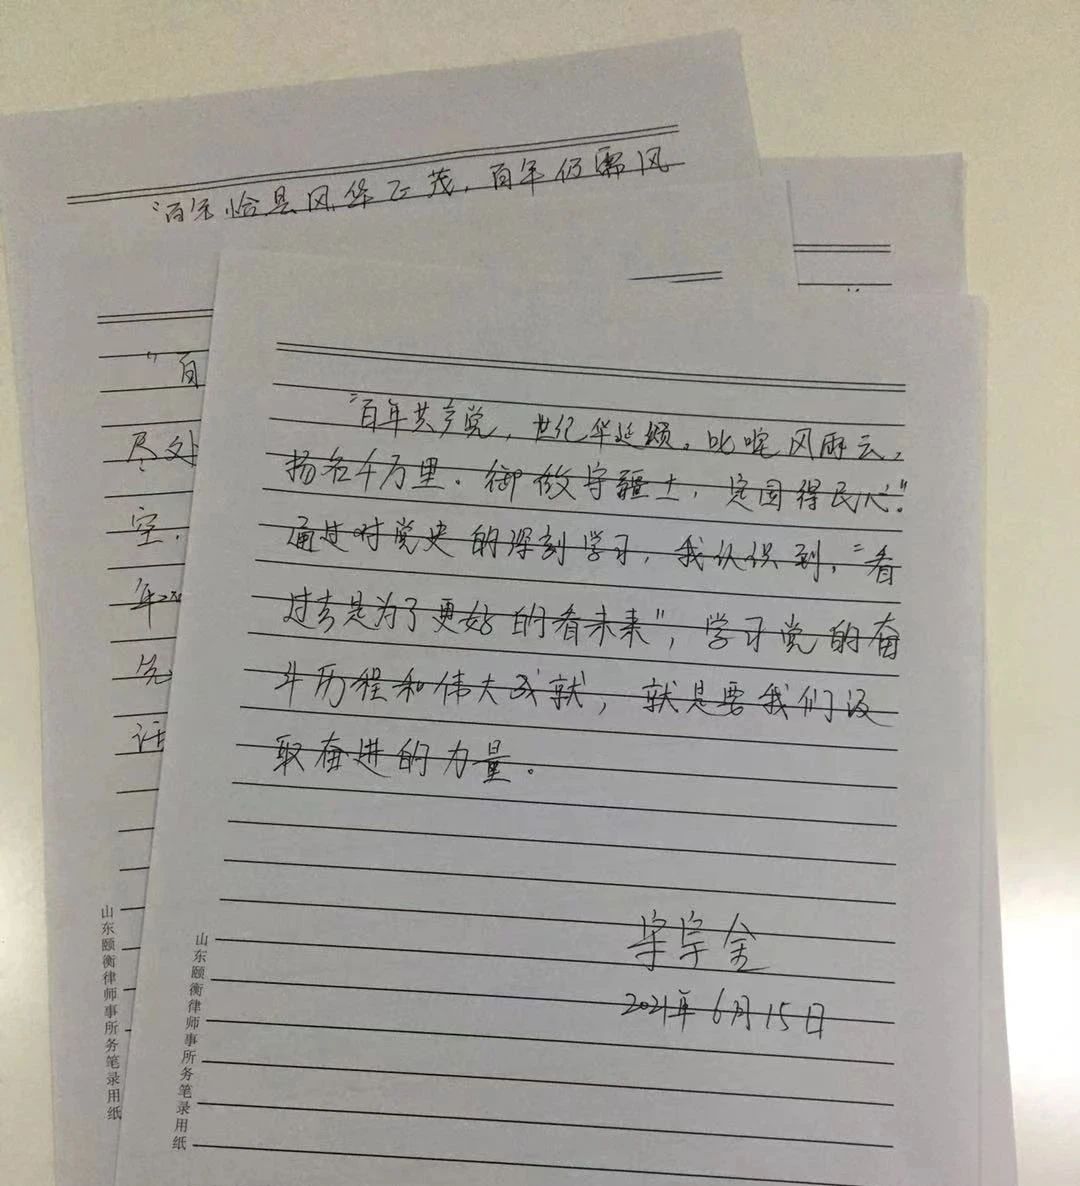 “百年恰是风华正茂，百年仍需风
“百
尽处
空，
年
先
话
“百年共产党，世纪华延颂。叱咤风雨云，
扬名千万里。御敌守疆土，定国得民心”。
通过对党史的深刻学习，我认识到，“看
过去是为了更好的看未来”，学习党的奋
斗历程和伟大成就，就是要我们汲
取奋进的力量。
宗全
2021年6月15日
山东颐衡律师事所务笔录用纸
山东颐衡律师事所务笔录用纸